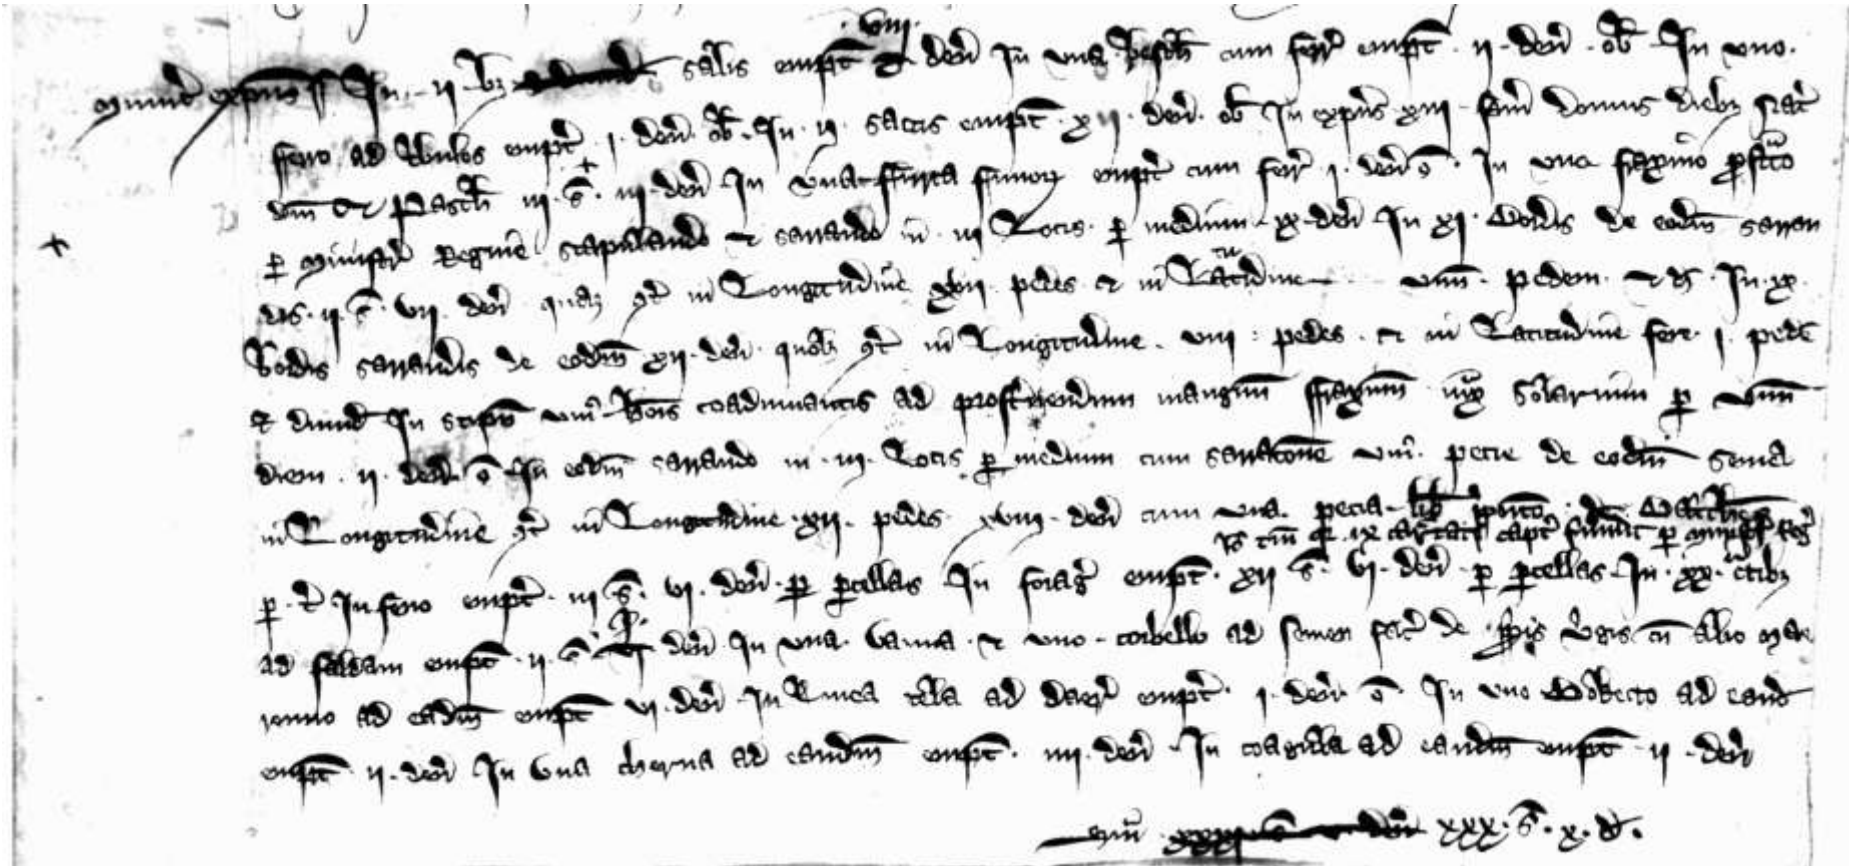 .viii.
Minut expens In .ii. bz salis empt den In una besch cum ferr empt .ii. den . ob In uno.
ferro ad empt .i. den . ob . In .ii. saccis empt .xii. den . ob In expns xiii fam domus diebz Nat
dni et Pasch iii . s . iii . den In una furca fimor empt cum ferr .i. den o . In uno fraxino prostrato
per ministr Regine scapulando et sarrando in .iii. locis per medium .xx. den In xi. bordis de eodm sarran
dis .ii. s . vii . den quar qt in longitudine xvii pedes et in latitudine unum . pedem . et di . In .ix.
bordis sarrandis de eodm xii . den quolz qt in longitudine . viii . pedes . et in latitudine fere .i. pede
et dimid In stipen uni hois coadiuvantis ad prosternendum mangnum fraxinum iuxta solarium per unum
diem . ii . den . o In eodm sarrando in .iii. locis per medium cum sarracone uni pecie de eodm semel
in longitudine qt in longitudine .xii. pedes xviii . den cum una pecia
tm ix captis fuerunt per minist Reg
per . t In feno empt . iii s . vi . den . per percellas In forag empt . xii s . vi . den . per percellas . In .xx. clatibz
ad faldam empt . ii . s . den . In una . vanna . et uno corbello ad semen fact de ppis virgis cum alio mae
remio ad eadm empt vi . den . In linea tela ad daer empt . i . den o . In uno bokecto ad eand
empt . ii . den In una cherna ad eandm empt . iiii . den . In coagula ad eandm empt .ii. den
Sm xxx . s . x . d .